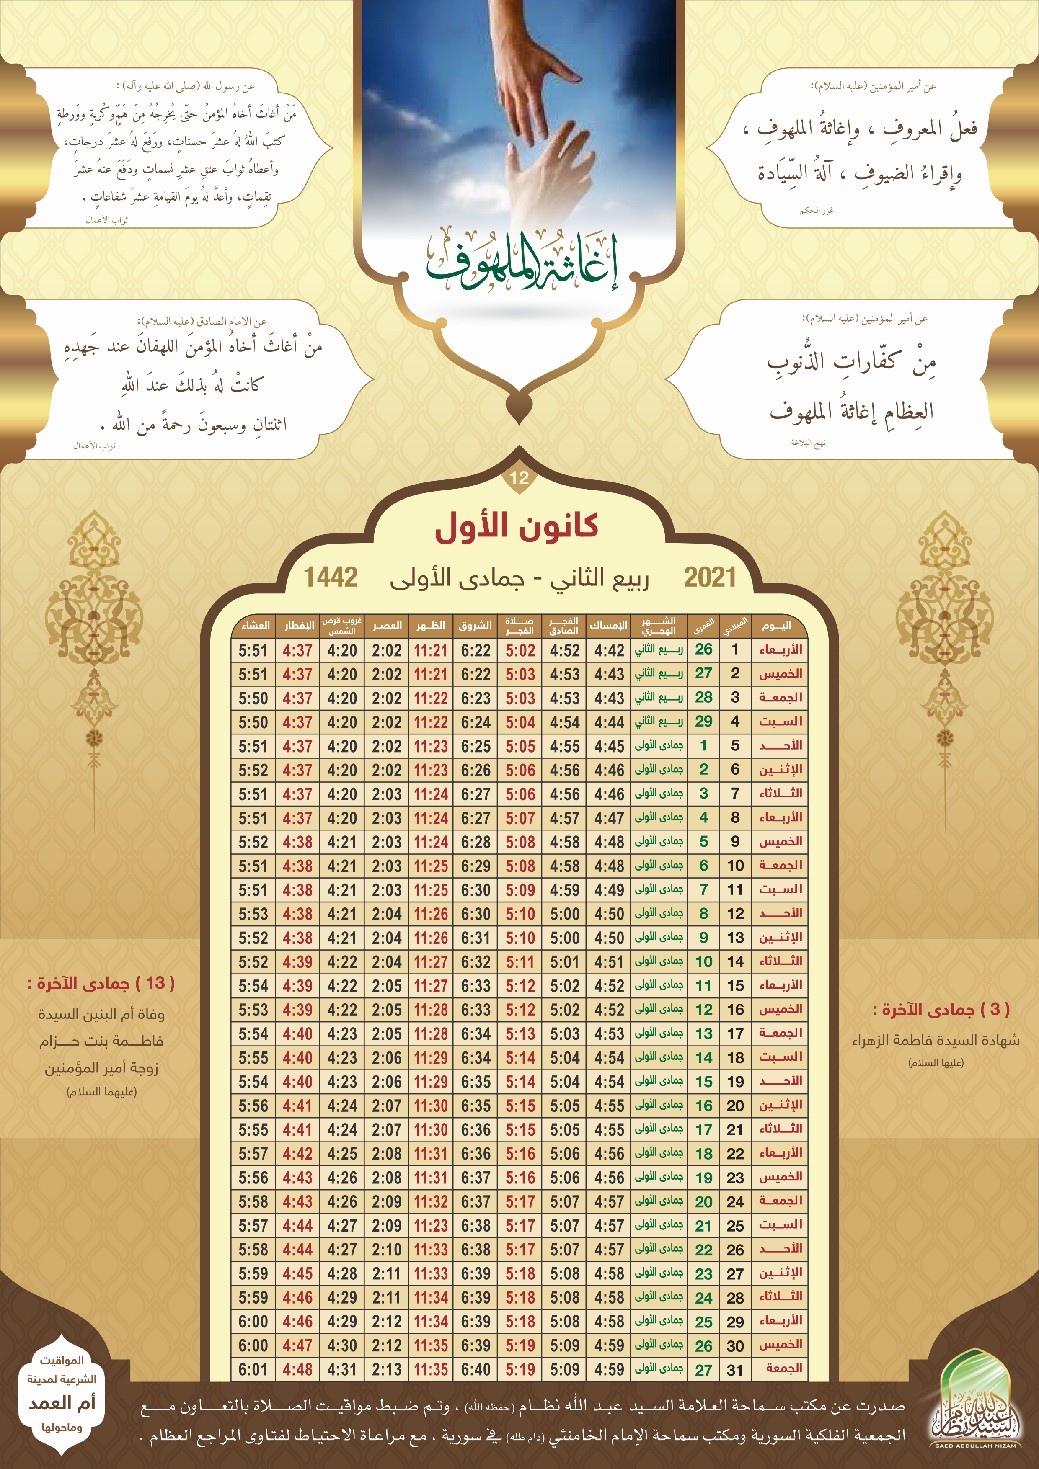 عن أمير المؤمنين (عليه السلام):
فعلُ المعروفِ ، وإغاثةُ الملهوفِ ،
وإقراءُ الضيوفِ ، آلةُ السِّيَادة
غرر الحكم
عن رسول الله (صلى الله عليه وآله) :
مَنْ أغاثَ أخاهُ المؤمنُ حتّى يُخرِجُهُ مِنْ هَمٍّ وكُربةٍ ووَرطةٍ
كتبَ اللهُ لهُ عشرَ حسناتٍ، ورفَعَ لهُ عشرَ درجاتٍ،
وأعطاهُ ثوابَ عتقِ عشرِ نسماتٍ ودَفَعَ عنهُ عشرَ
نِقِماتٍ، وأعدَّ لهُ يومَ القيامةِ عشرَ شفاعاتٍ .
ثواب الأعمال
إغاثة الملهوف
عن أمير المؤمنين (عليه السلام):
مِنْ كفّاراتِ الذُّنوبِ
العِظامِ إغاثةُ الملهوف
نهج البلاغة
عن الامام الصادق (عليه السلام):
منْ أغاثَ أخاهُ المؤمنَ اللهفانَ عند جَهدِهِ
كانتْ لهُ بذلكَ عندَ اللهِ
اثنتانِ وسبعونَ رحمةً من الله .
ثواب الأعمال
12
كانون الأول
2021 ربيع الثاني - جمادى الأولى 1442
اليوم الميلادي القمري الشهر الهجري الإمساك الفجر الصادق صلاة الفجر الشروق الظهر العصر غروب قرص الشمس الإفطار العشاء
الأربعاء 1 26 ربيع الثاني 4:42 4:52 5:02 6:22 11:21 2:02 4:20 4:37 5:51
الخميس 2 27 ربيع الثاني 4:43 4:53 5:03 6:22 11:21 2:02 4:20 4:37 5:51
الجمعة 3 28 ربيع الثاني 4:43 4:53 5:03 6:23 11:22 2:02 4:20 4:37 5:50
السبت 4 29 ربيع الثاني 4:44 4:54 5:04 6:24 11:22 2:02 4:20 4:37 5:50
الأحد 5 1 جمادى الأولى 4:45 4:55 5:05 6:25 11:23 2:02 4:20 4:37 5:51
الإثنين 6 2 جمادى الأولى 4:46 4:56 5:06 6:26 11:23 2:02 4:20 4:37 5:52
الثلاثاء 7 3 جمادى الأولى 4:46 4:56 5:06 6:27 11:24 2:03 4:20 4:37 5:51
الأربعاء 8 4 جمادى الأولى 4:47 4:57 5:07 6:27 11:24 2:03 4:20 4:37 5:51
الخميس 9 5 جمادى الأولى 4:48 4:58 5:08 6:28 11:24 2:03 4:21 4:38 5:52
الجمعة 10 6 جمادى الأولى 4:48 4:58 5:08 6:29 11:25 2:03 4:21 4:38 5:51
السبت 11 7 جمادى الأولى 4:49 4:59 5:09 6:30 11:25 2:03 4:21 4:38 5:51
الأحد 12 8 جمادى الأولى 4:50 5:00 5:10 6:30 11:26 2:04 4:21 4:38 5:53
الإثنين 13 9 جمادى الأولى 4:50 5:00 5:10 6:31 11:26 2:04 4:21 4:38 5:52
الثلاثاء 14 10 جمادى الأولى 4:51 5:01 5:11 6:32 11:27 2:04 4:22 4:39 5:52
الأربعاء 15 11 جمادى الأولى 4:52 5:02 5:12 6:33 11:27 2:05 4:22 4:39 5:54
الخميس 16 12 جمادى الأولى 4:52 5:02 5:12 6:33 11:28 2:05 4:22 4:39 5:53
الجمعة 17 13 جمادى الأولى 4:53 5:03 5:13 6:34 11:28 2:05 4:23 4:40 5:54
السبت 18 14 جمادى الأولى 4:54 5:04 5:14 6:34 11:29 2:06 4:23 4:40 5:55
الأحد 19 15 جمادى الأولى 4:54 5:04 5:14 6:35 11:29 2:06 4:23 4:40 5:54
الإثنين 20 16 جمادى الأولى 4:55 5:05 5:15 6:35 11:30 2:07 4:24 4:41 5:56
الثلاثاء 21 17 جمادى الأولى 4:55 5:05 5:15 6:36 11:30 2:07 4:24 4:41 5:55
الأربعاء 22 18 جمادى الأولى 4:56 5:06 5:16 6:36 11:31 2:08 4:25 4:42 5:57
الخميس 23 19 جمادى الأولى 4:56 5:06 5:16 6:37 11:31 2:08 4:26 4:43 5:56
الجمعة 24 20 جمادى الأولى 4:57 5:07 5:17 6:37 11:32 2:09 4:26 4:43 5:58
السبت 25 21 جمادى الأولى 4:57 5:07 5:17 6:38 11:23 2:09 4:27 4:44 5:57
الأحد 26 22 جمادى الأولى 4:57 5:07 5:17 6:38 11:33 2:10 4:27 4:44 5:58
الإثنين 27 23 جمادى الأولى 4:58 5:08 5:18 6:39 11:33 2:11 4:28 4:45 5:59
الثلاثاء 28 24 جمادى الأولى 4:58 5:08 5:18 6:39 11:34 2:11 4:29 4:46 5:59
الأربعاء 29 25 جمادى الأولى 4:58 5:08 5:18 6:39 11:34 2:12 4:29 4:46 6:00
الخميس 30 26 جمادى الأولى 4:59 5:09 5:19 6:39 11:35 2:12 4:30 4:47 6:00
الجمعة 31 27 جمادى الأولى 4:59 5:09 5:19 6:40 11:35 2:13 4:31 4:48 6:01
( 3 ) جمادى الآخرة :
شهادة السيدة فاطمة الزهراء
(عليها السلام)
( 13 ) جمادى الآخرة :
وفاة أم البنين السيدة
فاطمة بنت حزام
زوجة أمير المؤمنين
(عليهما السلام)
صدرت عن مكتب سماحة العلامة السيد عبد الله نظام (حفظه الله) ، وتم ضبط مواقيت الصلاة بالتعاون مع
الجمعية الفلكية السورية ومكتب سماحة الإمام الخامنئي (دام ظله) في سورية ، مع مراعاة الاحتياط لفتاوى المراجع العظام .
المواقيت
الشرعية لمدينة
أم العمد
وماحولها
السيد عبدالله نظام
SAED ABDULLAH NIZAM